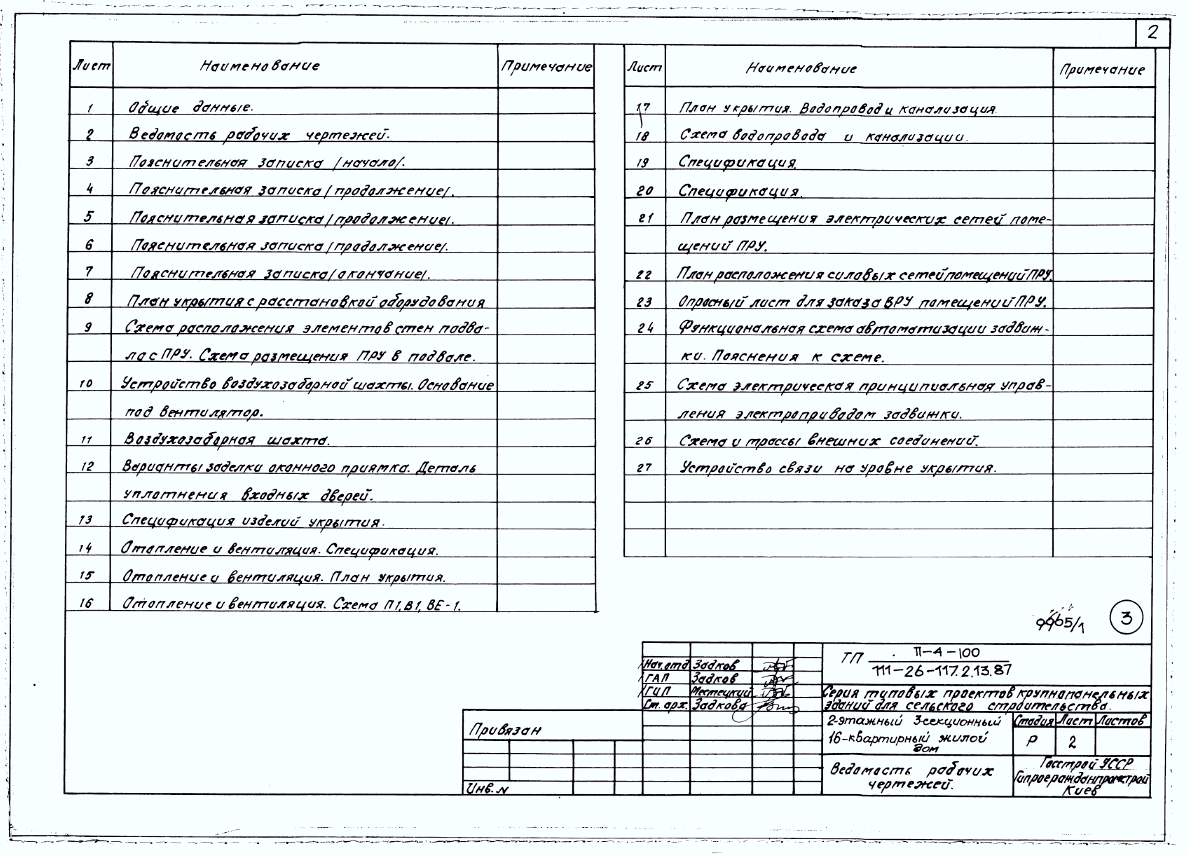 2
Лист Наименование Примечание
1 Общие данные.
2 Ведомость рабочих чертежей.
3 Пояснительная записка /начало/.
4 Пояснительная записка /продолжение/.
5 Пояснительная записка /продолжение/.
6 Пояснительная записка /продолжение/.
7 Пояснительная записка /окончание/.
8 План укрытия с расстановкой оборудования
9 Схема расположения элементов стен подва-
ла с ПРУ. Схема размещения ПРУ в подвале.
10 Устройство воздухозаборной шахты. Основание
под вентилятор.
11 Воздухозаборная шахта.
12 Варианты заделки оконного приямка. Деталь
уплотнения входных дверей.
13 Спецификация изделий укрытия.
14 Отопление и вентиляция. Спецификация.
15 Отопление и вентиляция. План укрытия.
16 Отопление и вентиляция. Схема П1, В1, ВЕ-1.
Лист Наименование Примечание
17 План укрытия. Водопровод и канализация
18 Схема водопровода и канализации.
19 Спецификация.
20 Спецификация.
21 План размещения электрических сетей поме-
щений ПРУ.
22 План расположения силовых сетей помещений ПРУ.
23 Опросный лист для заказа ВРУ помещений ПРУ.
24 Функциональная схема автоматизации задвиж-
ки. Пояснения к схеме.
25 Схема электрическая принципиальная управ-
ления электроприводом задвижки.
26 Схема и трассы внешних соединений.
27 Устройство связи на уровне укрытия.
3
Нач.отд Задков
ГАП Задков
ГИП Местецкий
Ст. арх. Задкова
Привязан
Инв. N
ТП П-4-100
111-26-117.2.13.87
Серия типовых проектов крупнопанельных
зданий для сельского строительства.
2-этажный 3секционный
16-квартирный жилой
дом
Стадия Лист Листов
Р 2
Ведомость рабочих
чертежей.
Госстрой УССР
Гипрогражданпромстрой
Киев